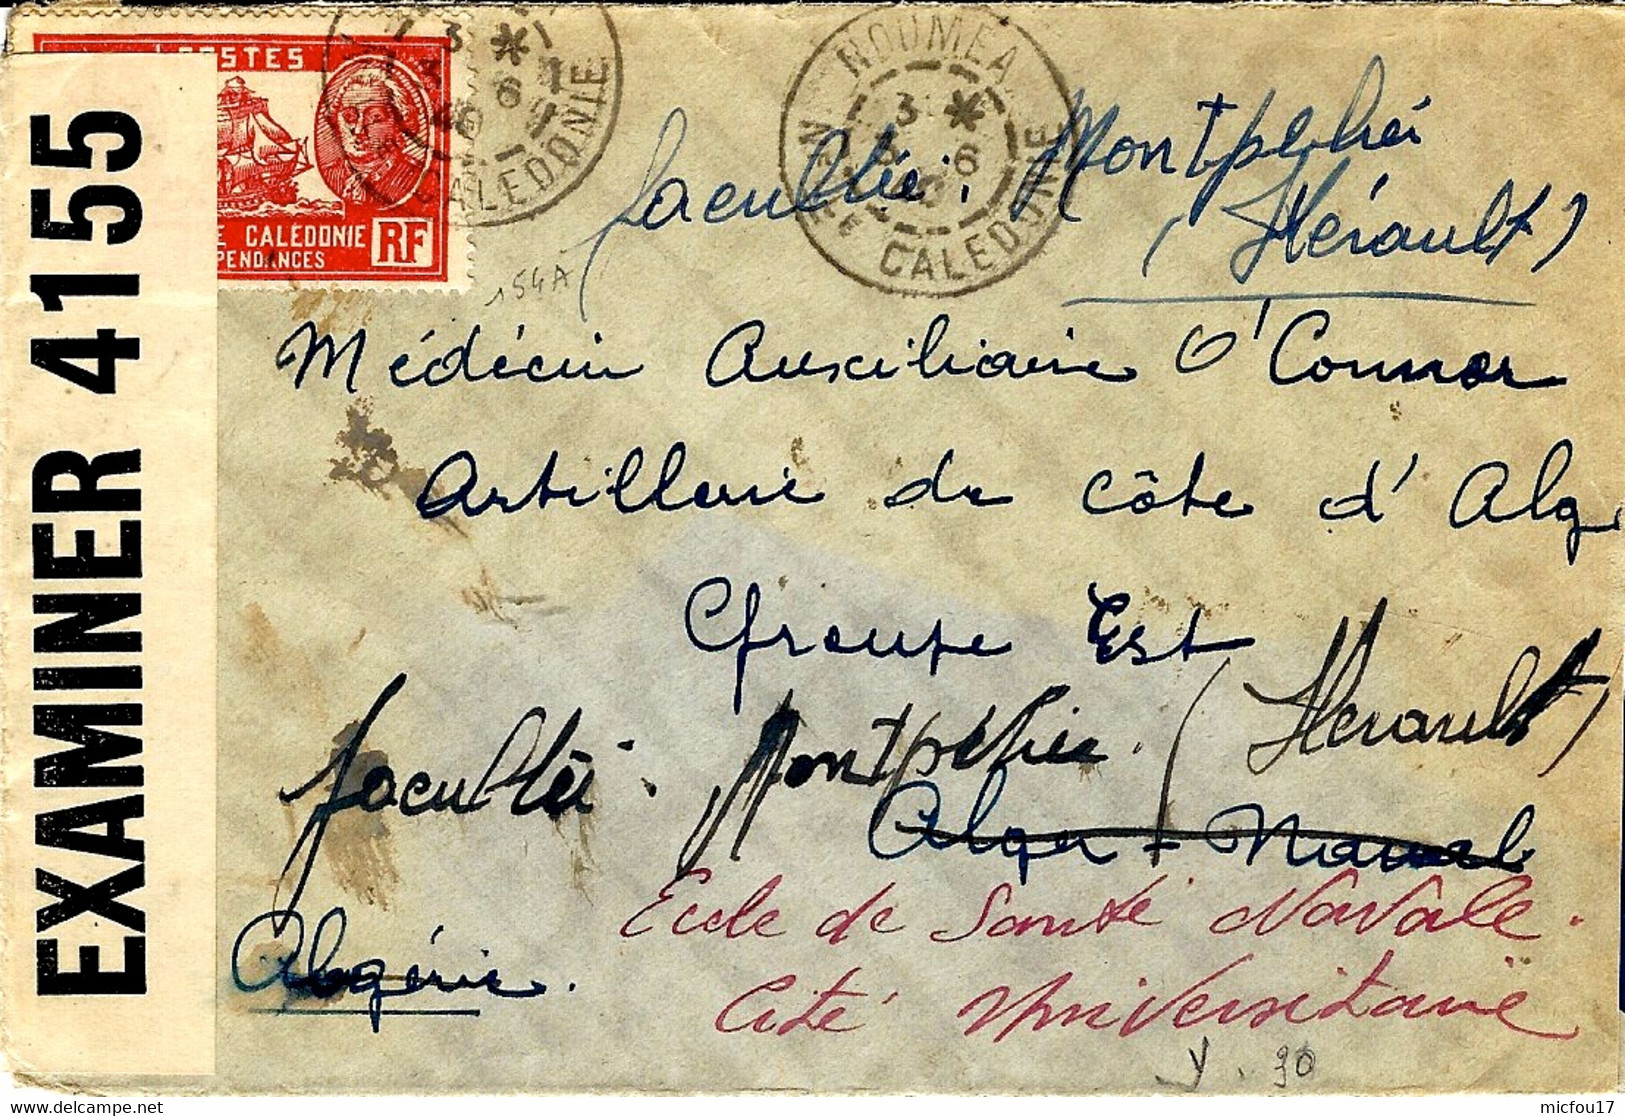 EXAMINER 4155
POSTES
CALÉDONIE
RF
PENDANCES
CALEDONIE
NOUMEA
3 * 
6
CALEDONIE
154A
faculté : Montpellier
(Hérault)
Médécin Auxiliaire O'Connor
Artillerie de côte d'Alg
Groupe Est
faculté : Montpellier (Hérault)
Alger
Ecole de Santé Navale.
Algérie.
Cité Universitaire
Y. 30
micfou17